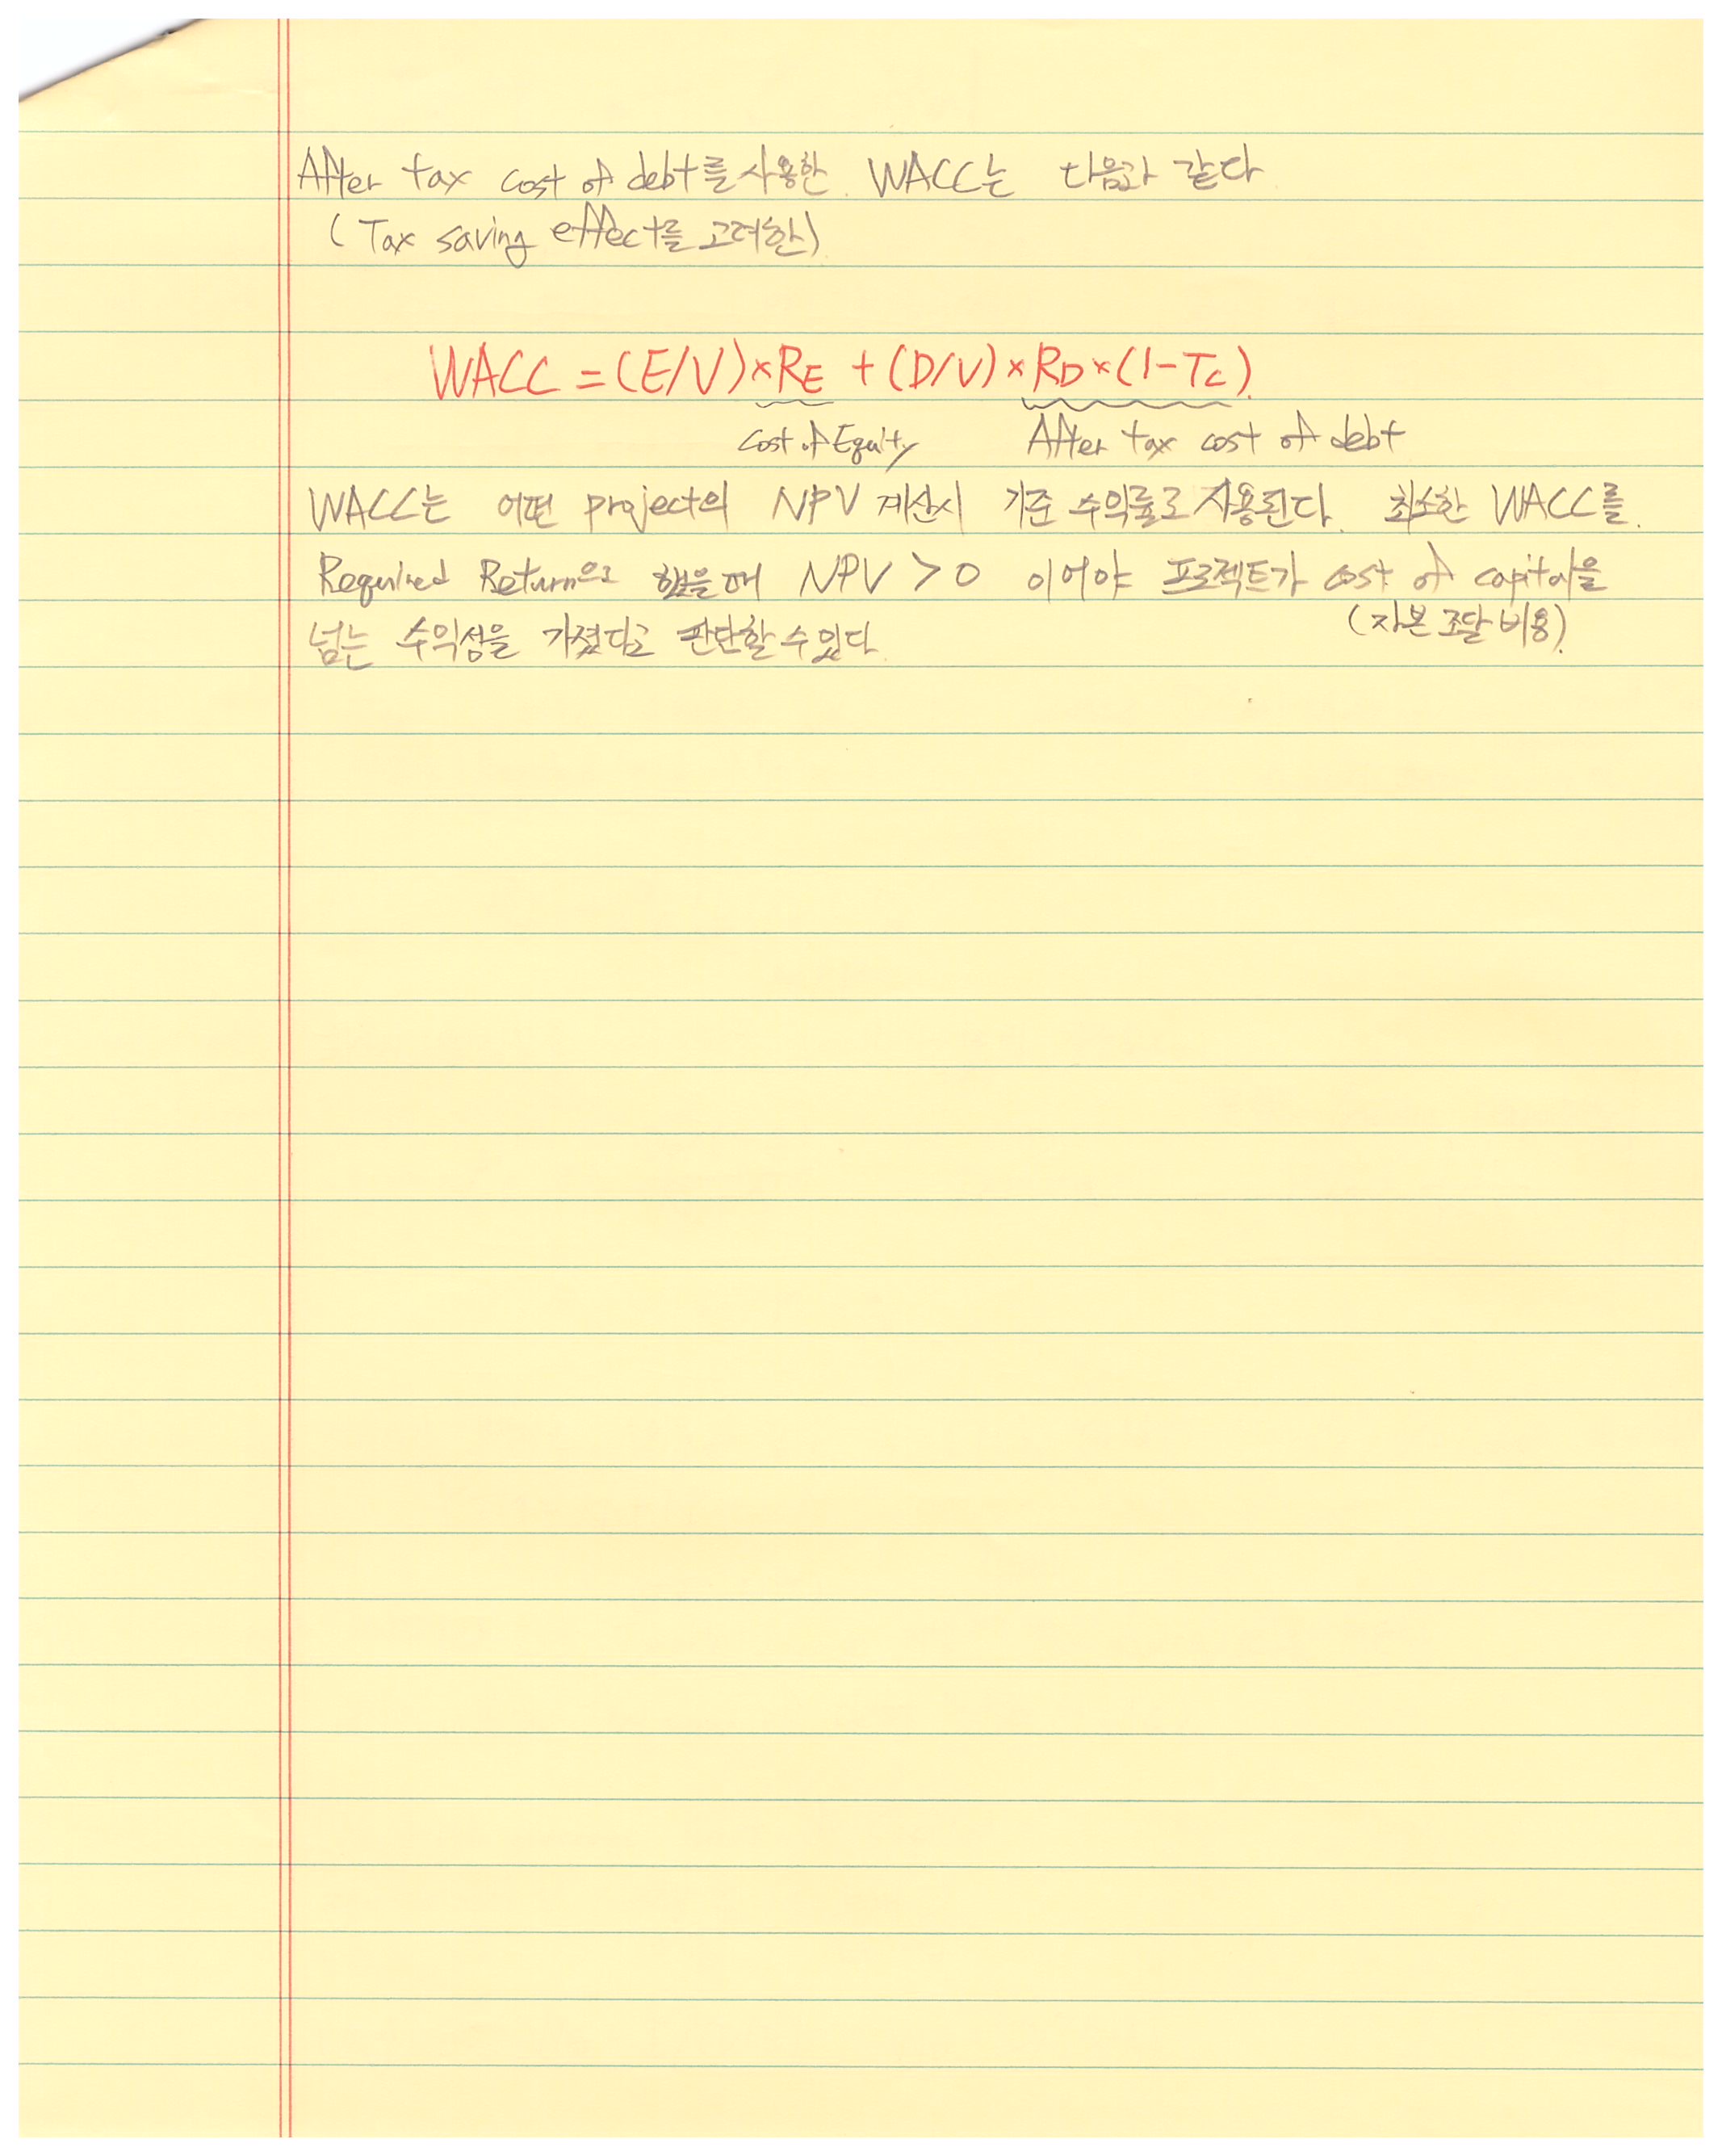 After tax cost of debt를 사용한. WACC는 다음과 같다
(Tax saving effect를 고려한)
WACC = (E/V)×RE + (D/V)×RD×(1-Tc).
Cost of Equity After tax cost of debt
WACC는 어떤 project의 NPV 계산시 기준 수익률로 사용된다. 최소한 WACC를.
Required Return으로 했을때 NPV > 0 이어야 프로젝트가 cost of capital을
(자본 조달 비용).
넘는 수익성을 가졌다고 판단할 수 있다.